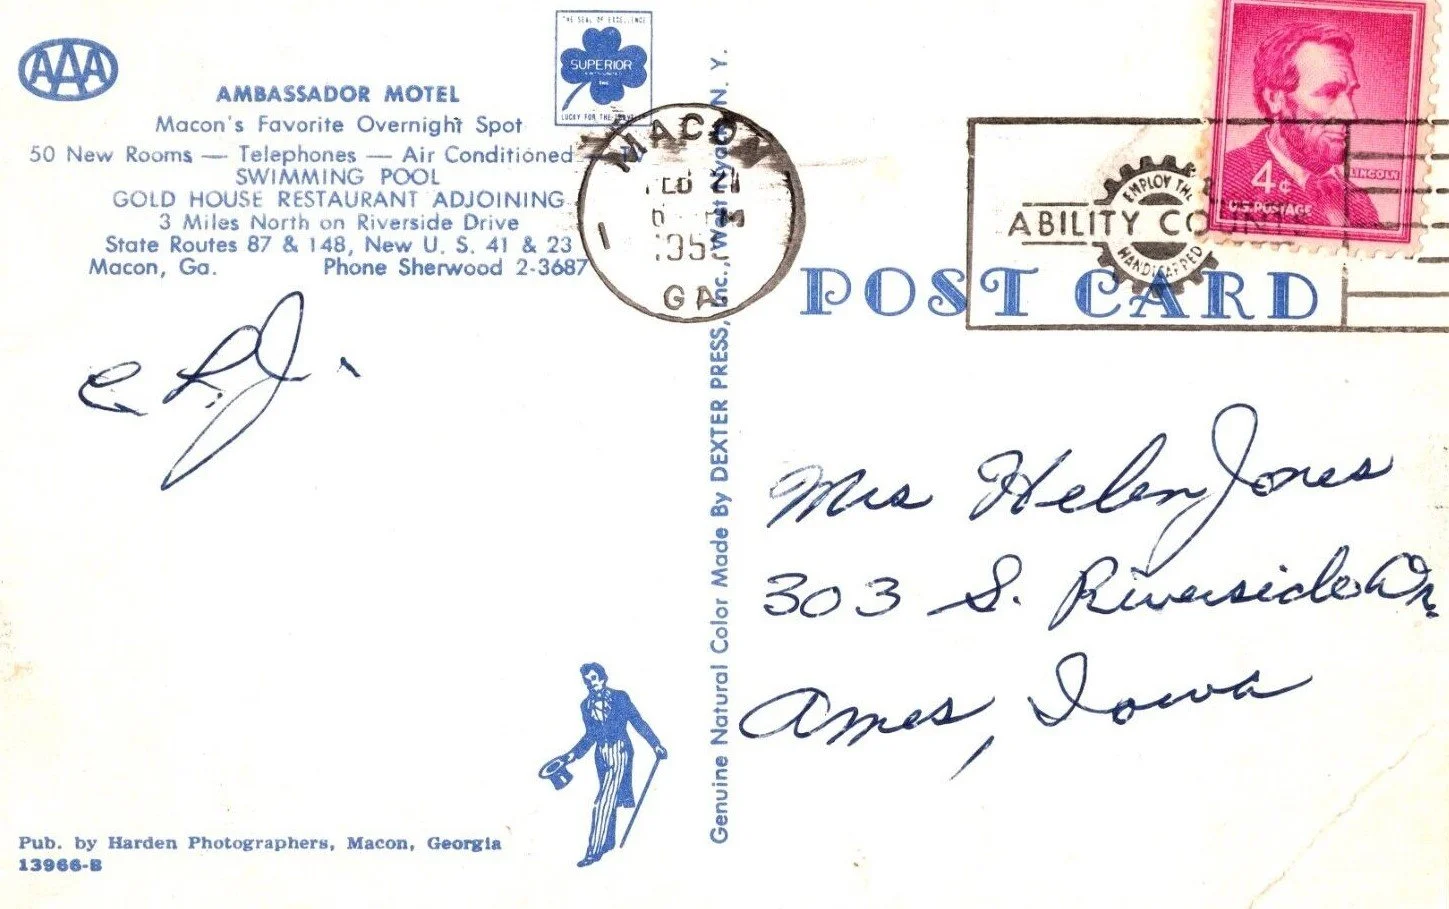 AAA
THE SEAL OF EXCELLENCE
SUPERIOR
LUCKY FOR THE
AMBASSADOR MOTEL
Macon's Favorite Overnight Spot
50 New Rooms — Telephones — Air Conditioned — TV
SWIMMING POOL
GOLD HOUSE RESTAURANT ADJOINING
3 Miles North on Riverside Drive
State Routes 87 & 148, New U. S. 41 & 23
Macon, Ga. Phone Sherwood 2-3687
MACON
FEB 21
PM
GA.
1
EMPLOY THE
ABILITY COUNTS
HANDICAPPED
4¢
LINCOLN
U.S. POSTAGE
POST CARD
C.R.J.
Mrs Helen Jones
303 S. Riverside Dr.
Ames, Iowa
Genuine Natural Color Made By DEXTER PRESS, Inc., West Nyack, N. Y.
Pub. by Harden Photographers, Macon, Georgia
13966-B